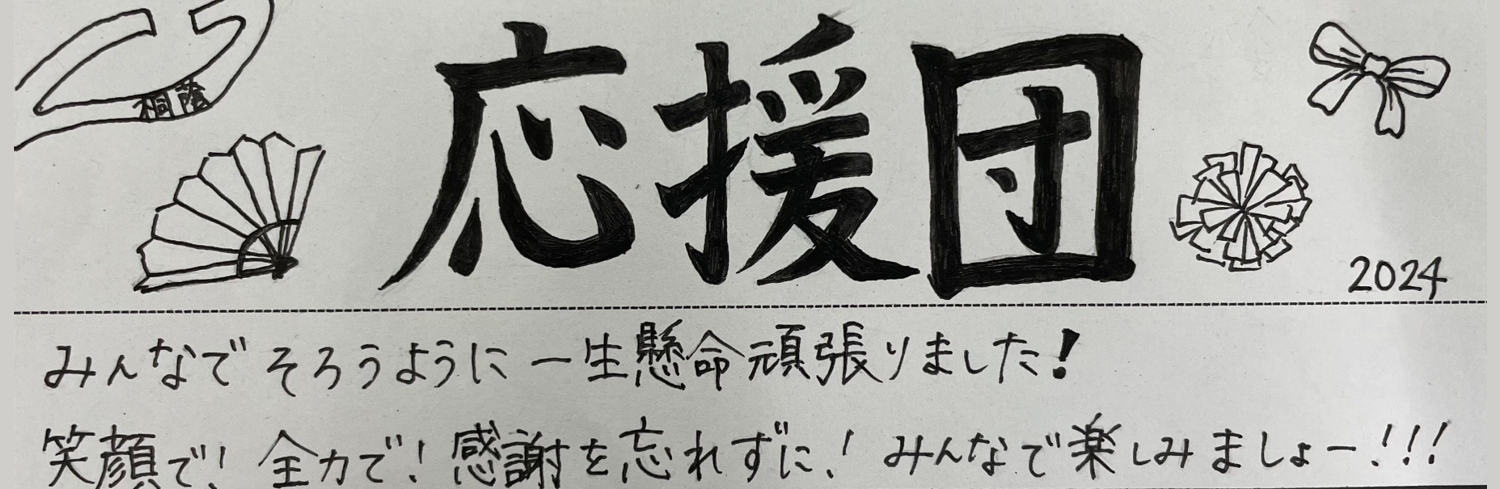 桐蔭
応援団
2024
みんなでそろうように一生懸命頑張りました!
笑顔で!全力で!感謝を忘れずに!みんなで楽しみましょー!!!